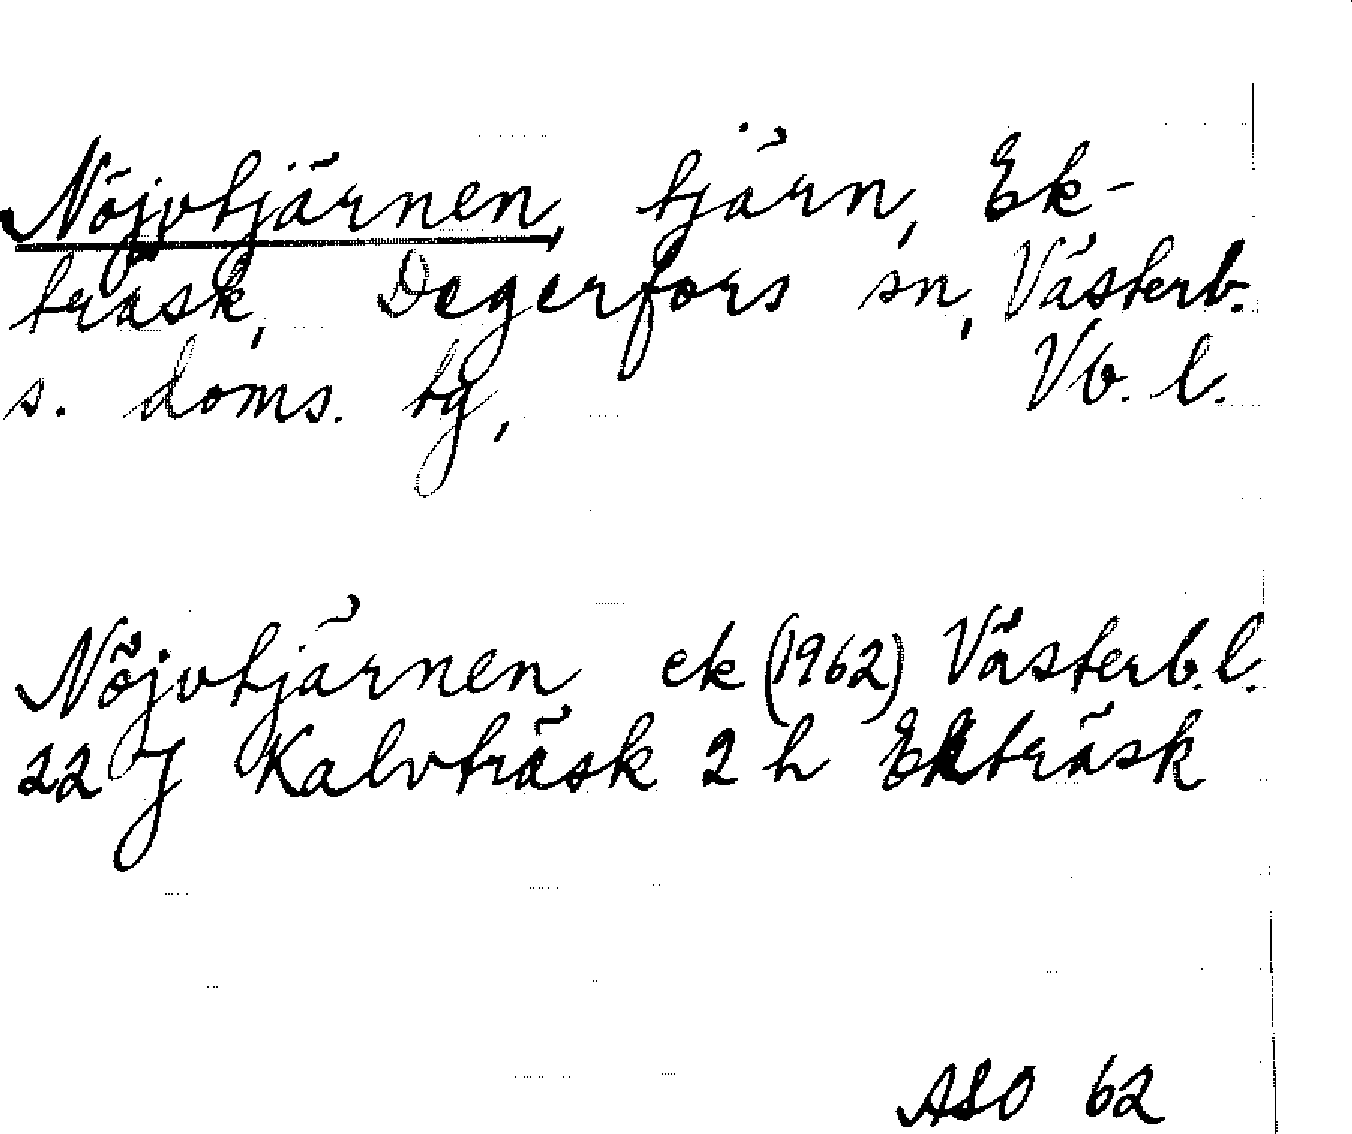 Nöjvtjärnen, tjärn, Ek-
träsk, Degerfors sn, Västerb.
s. doms. tg, Vb. l.
Nöjvtjärnen ek (1962) Västerb. l.
22 J Kalvträsk 2 h Ekträsk
ASO 62